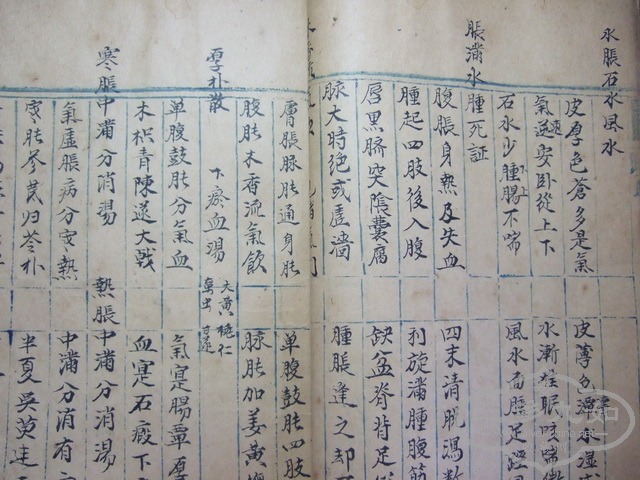 水脹石水風水
皮厚色蒼多是氣
皮薄色澤
氣逆安臥從上下
水漸難眠咳喘
石水少腫腸不喘
風水面腫足脛
脹滿水腫死証
腹脹身熱及失血
四末清脫瀉数
腫起四肢後入腹
利旋滿腫腹筋
唇黑臍突陰囊腐
缺盆脊背足
脉大時絕或虛濇
腫脹逢之却
膚脹脉脹通身脹
單腹鼓脹四肢
腹脹木香流氣飲
脉脹加姜黃
厚朴散
下瘀血湯
大黃桃仁
䗪虫甘遂
單腹鼓脹分氣血
氣寔腸覃厚
木枳青陳遂大戟
血寔石瘕下
寒脹中滿分消湯
熱脹中滿分消湯
氣虛脹病分寒熱
中滿分消有
寒脹參芪归苓朴
半夏吳萸連